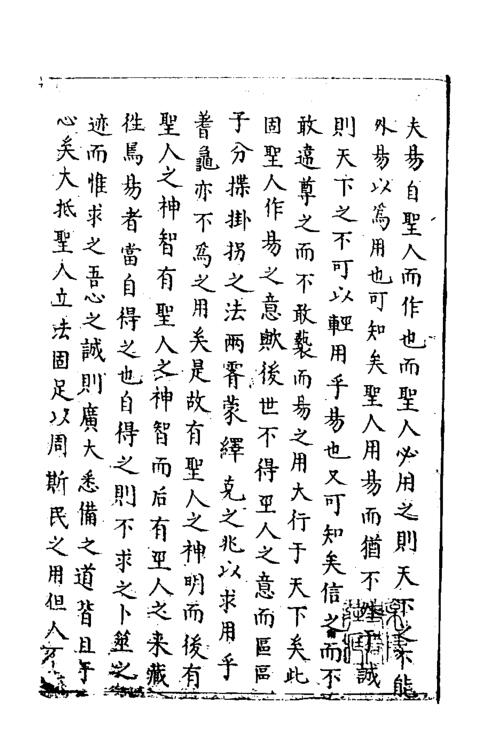 夫易自聖人而作也而聖人必用之則天下之不能
外易以爲用也可知矣聖人用易而猶不誠
則天下之不可以輕用乎易也又可知矣信之而不
敢違尊之而不敢褻而易之用大行于天下矣此
固聖人作易之意歟後世不得聖人之意而區區
子分揲掛拐之法兩霽蒙繹克之兆以求用乎
蓍龜亦不爲之用矣是故有聖人之神明而後有
聖人之神智有聖人之神智而后有聖人之来藏
徃焉易者當自得之也自得之則不求之卜筮之
迹而惟求之吾心之誠則廣大悉備之道皆且于
心矣大抵聖人立法固足以周斯民之用但人